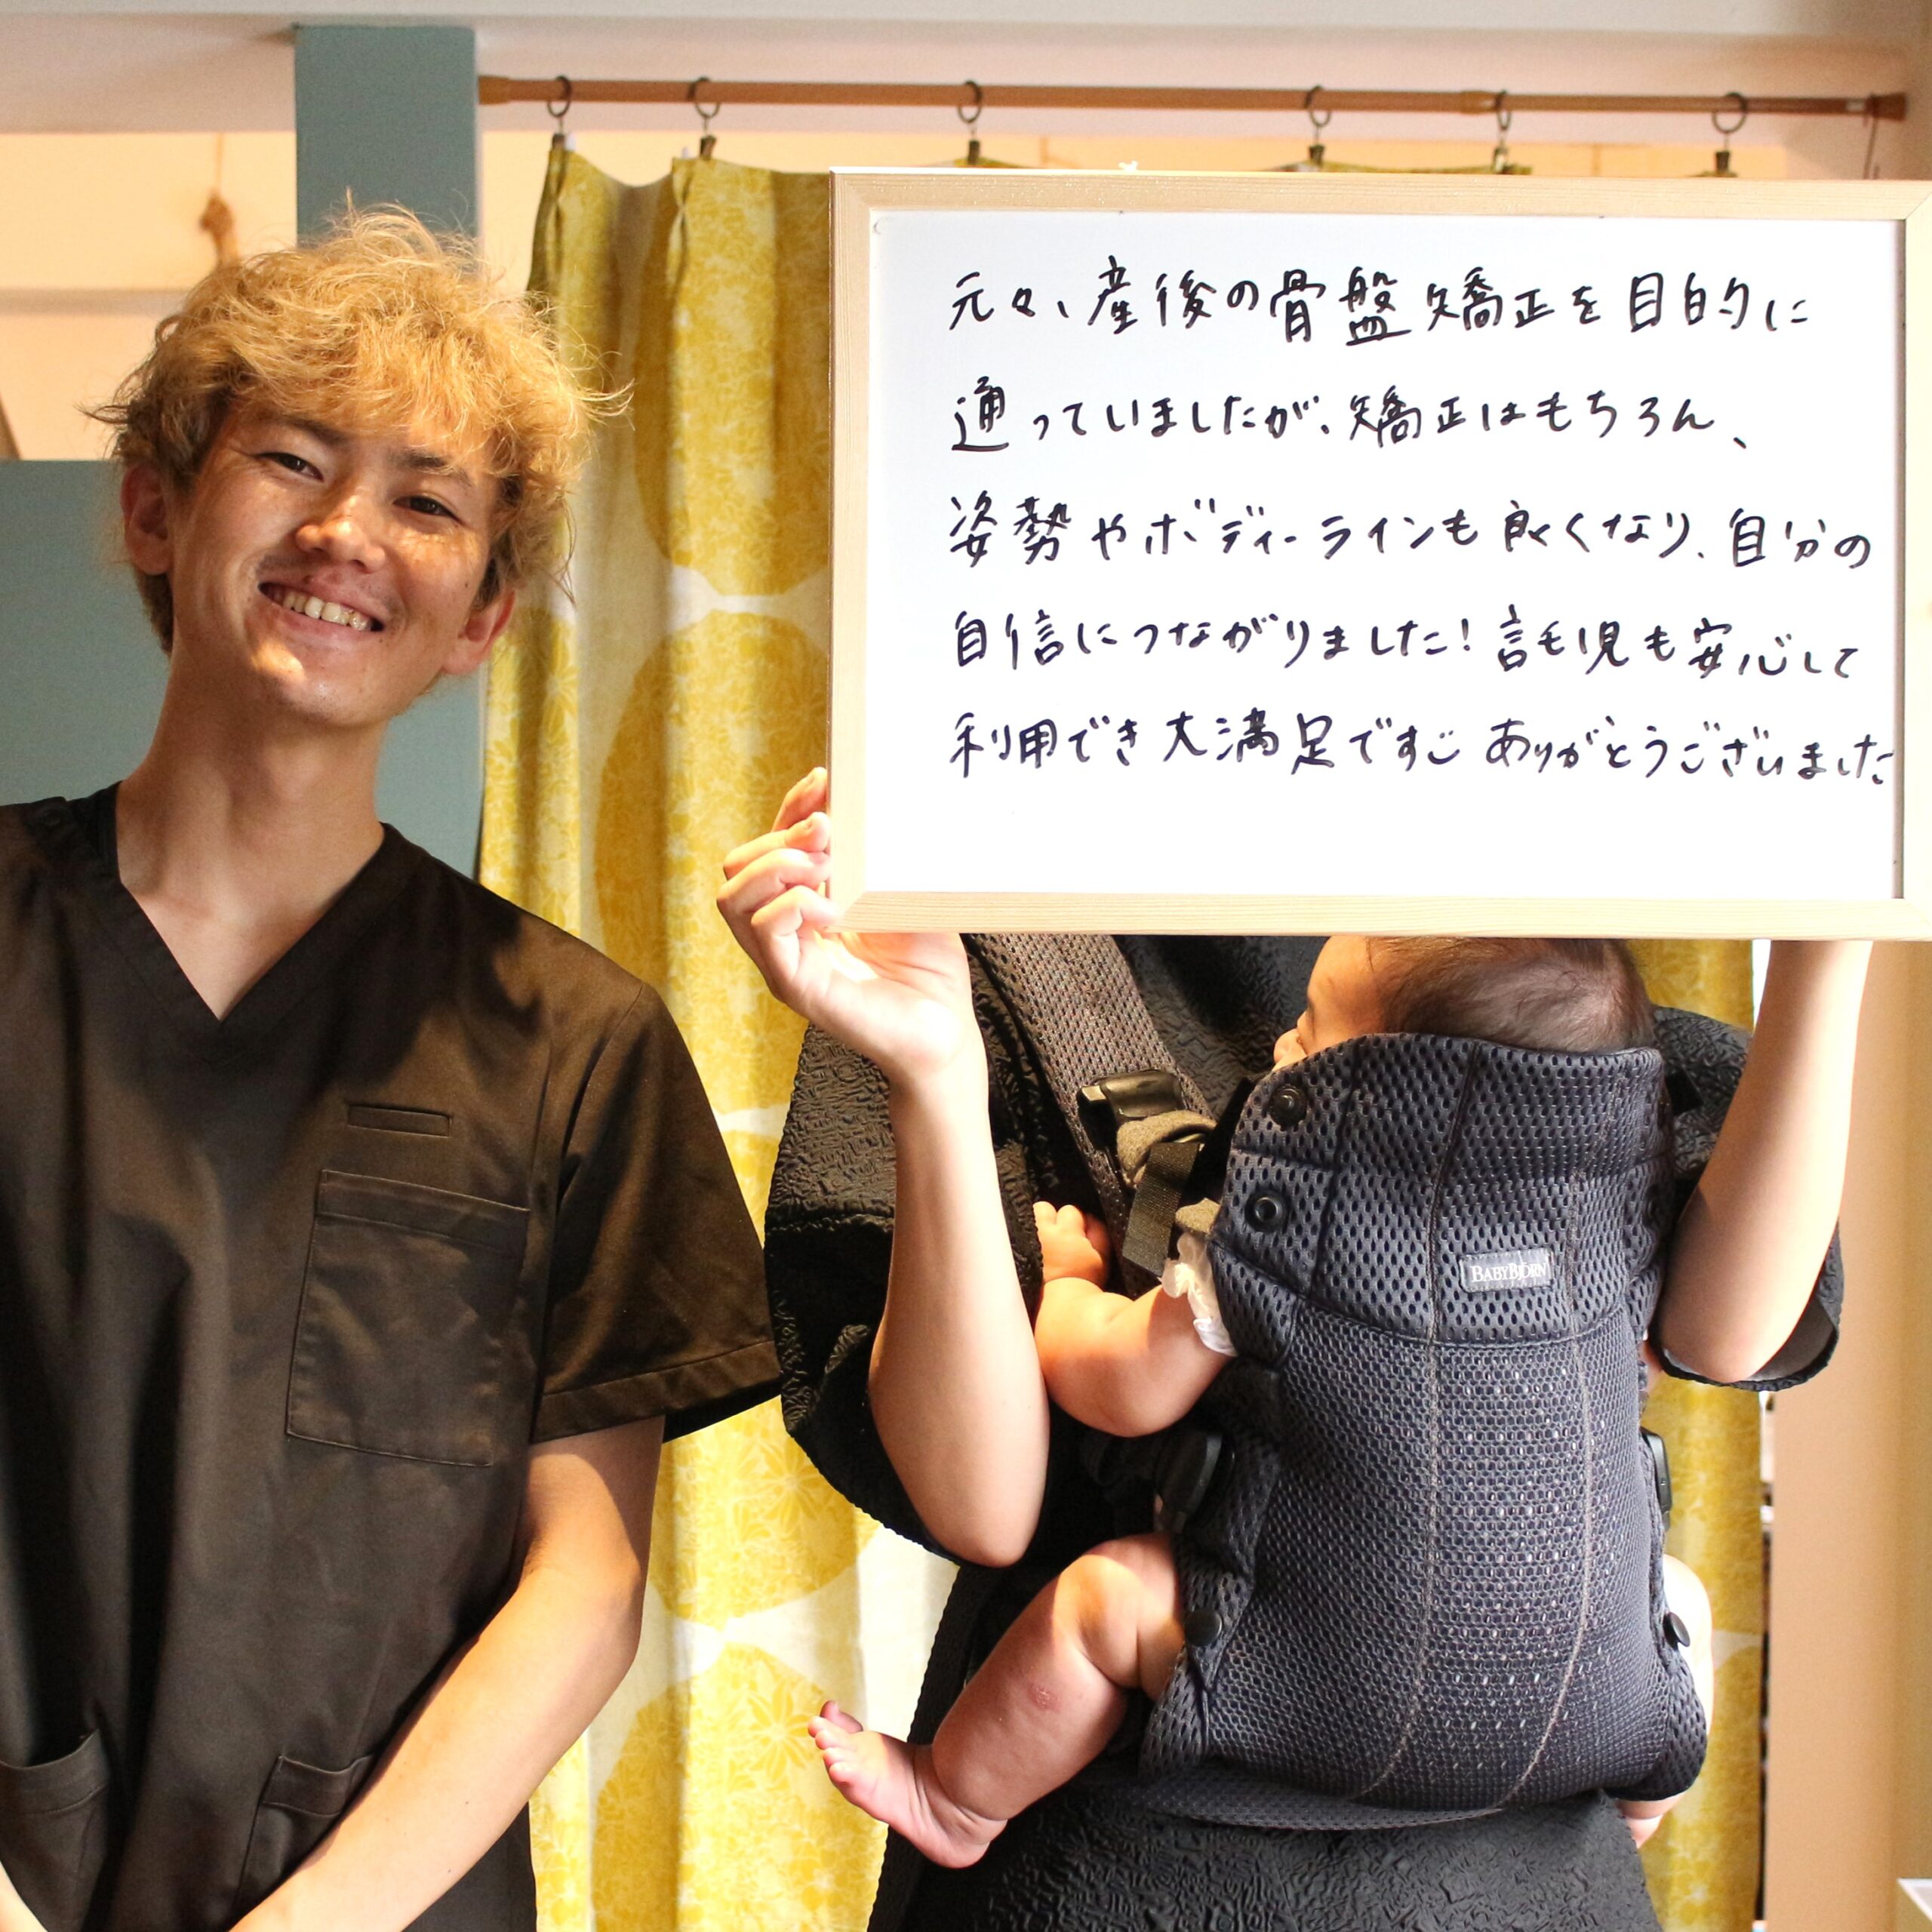 元々、産後の骨盤矯正を目的に
通っていましたが、矯正はもちろん、
姿勢やボディーラインも良くなり、自分の
自信につながりました！託児も安心して
利用でき大満足ですご ありがとうございました
BABYBJÖRN